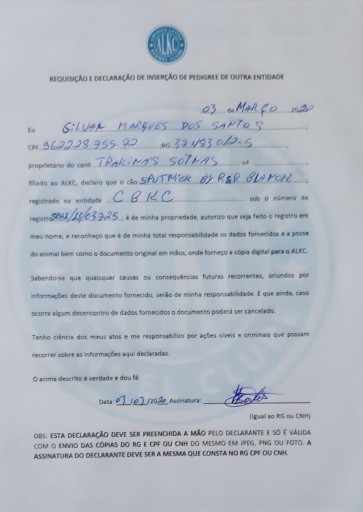 ALKC
REQUISIÇÃO E DECLARAÇÃO DE INSERÇÃO DE PEDIGREE DE OUTRA ENTIDADE
03 de MARÇO 2020
Eu GILVAN MARQUES DOS SANTOS
CPF 962228955-72 RG 37483012-5
proprietário do canil TRAKINAS SOTNAS nº
filiado ao ALKC, declaro que o cão SPUTNICK BY R&R BLANCH
registrado na entidade CBKC sob o número de
registro /03725, é de minha propriedade, autorizo que seja feito o registro em
meu nome, e reconheço que é de minha total responsabilidade os dados fornecidos e a posse
do animal bem como o documento original em mãos, onde forneço a cópia digital para o ALKC.
Sabendo-se que quaisquer causas ou consequências futuras recorrentes, oriundos por
informações deste documento fornecido, serão de minha responsabilidade. E que ainda, caso
ocorra algum desencontro de dados fornecidos o documento poderá ser cancelado.
Tenho ciência dos meus atos e me responsabilizo por ações cíveis e criminais que possam
recorrer sobre as informações aqui declaradas.
O acima descrito é verdade e dou fé
Data: 03/03/2020 Assinatura:
(Igual ao RG ou CNH)
OBS: ESTA DECLARAÇÃO DEVE SER PREENCHIDA A MÃO PELO DECLARANTE E SÓ É VÁLIDA
COM O ENVIO DAS CÓPIAS DO RG E CPF OU CNH DO MESMO EM JPEG, PNG OU FOTO. A
ASSINATURA DO DECLARANTE DEVE SER A MESMA QUE CONSTA NO RG CPF OU CNH.